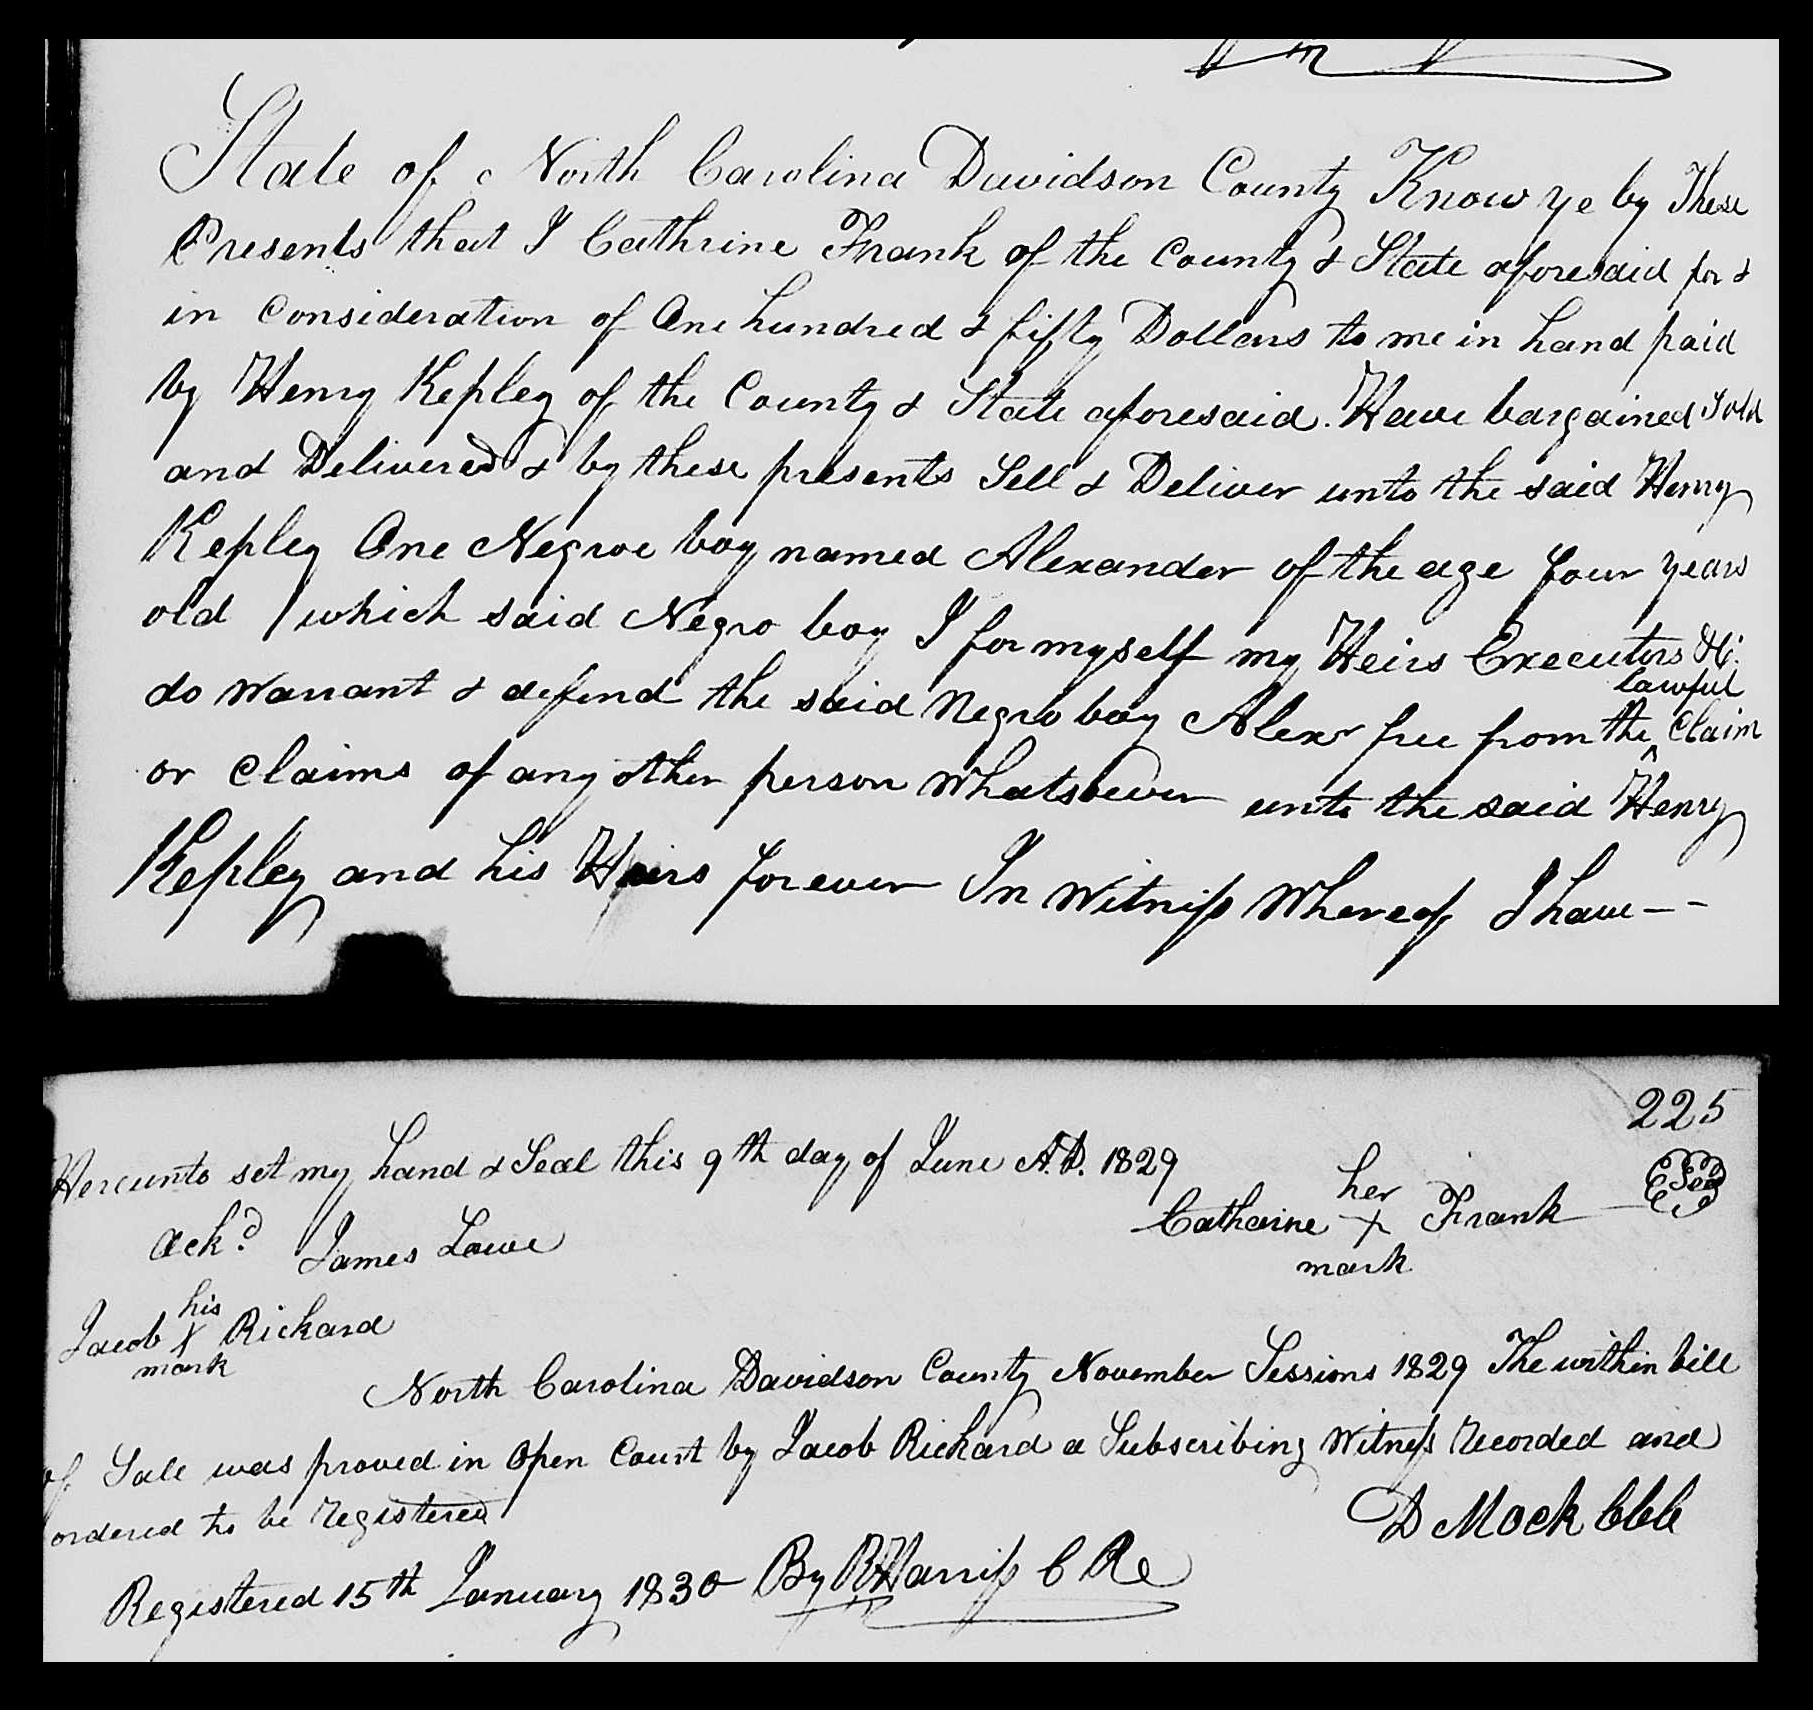 State of North Carolina Davidson County Know ye by These
Presents that I Cathrine Frank of the County & State aforesaid for &
in Consideration of One hundred & fifty Dollars to me in hand paid
by Henry Kepley of the County & State aforesaid. Have bargained Sold
and Delivered & by these presents Sell & Deliver unto the said Henry
Kepley One Negroe boy named Alexander of the age four years
old which said Negro boy I for myself my Heirs Executors &c.
lawful
do Warrant & defend the said Negro boy Alexr free from the ^ Claim
or Claims of any other person Whatsoever unto the said Henry
Kepley and his Heirs forever In Witness Whereof I have --
225
Hereunto set my hand & Seal this 9th day of June A.D. 1829
her
Catharine X Frank Seal
mark
Ackd. James Lowe
his
Jacob X Rickard
mark
North Carolina Davidson County November Sessions 1829 The within bill
of Sale was proved in Open Court by Jacob Rickard a Subscribing Witness Recorded and
ordered to be Registered
D Mock CCC
Registered 15th January 1830 By R Harriss C Re